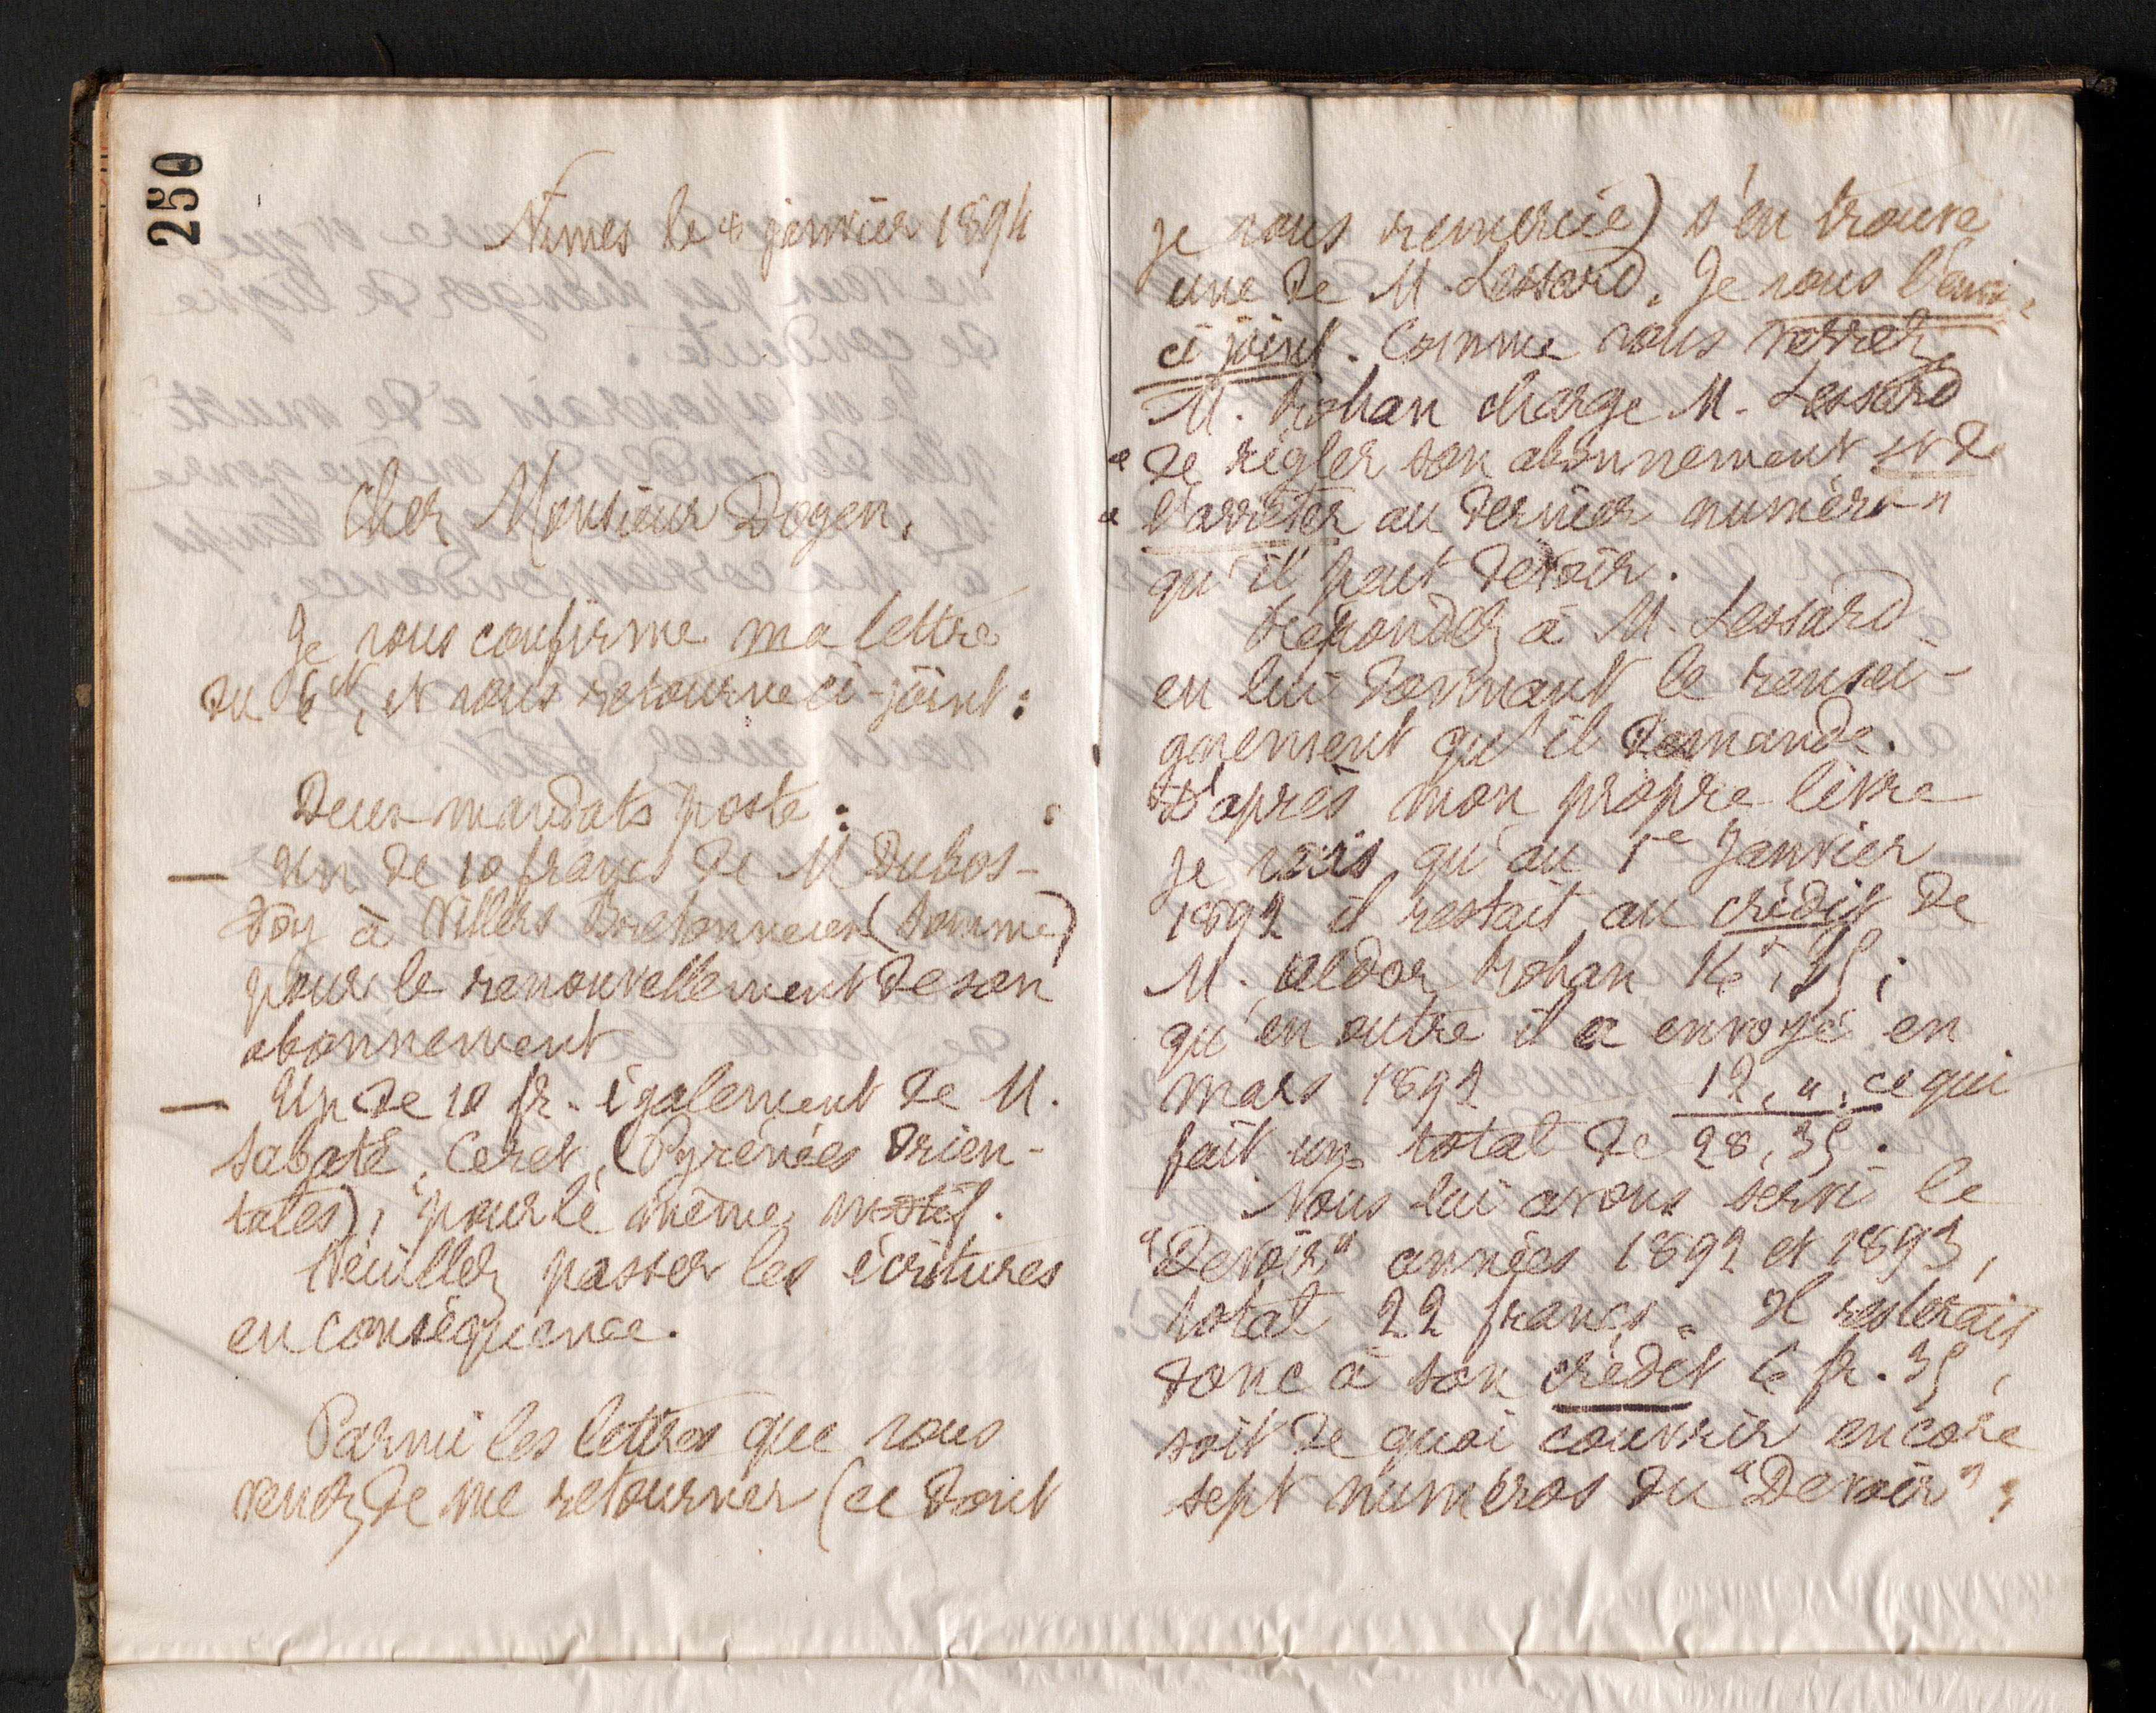 250
Nîmes le 8 janvier 1894
Cher Monsieur Doyen,
Je vous confirme ma lettre
du 6 ct, et vous retourne ci-joint :
Deux mandats poste :
— Un de 10 francs de M Dubos-
à Villers Bretonneux (Somme)
pour le renouvellement de son
abonnement
— Un de 10 fr. également de M.
Sabaté, Ceret, (Pyrénées Orien-
tales), pour le même motif.
Veuillez passer les écritures
en conséquence.
Parmi les lettres que vous
venez de me retourner (ce dont
je vous remercie) s'en trouve
une de M. Lessard. Je vous l'envoie
ci joint. Comme vous verrez,
M. Rohan charge M. Lessard
" de régler son abonnement et de
" l'arrêter au dernier numéro "
qu'il peut devoir.
Répondez à M. Lessard
en lui donnant le rensei-
gnement qu'il demande.
D'après mon propre livre
je vois qu'au 1e Janvier
1892 il restait au crédit de
M. Rohan 16, 35 ;
qu'en outre il a envoyé en
mars 1892 12, ". ce qui
fait un total de 28, 35.
Nous lui avons servi le
"Devoir" années 1892 et 1893,
total 22 francs. Il resterait
donc à son crédit 6 fr. 35,
soit de quoi couvrir encore
sept numéros du "Devoir" ;